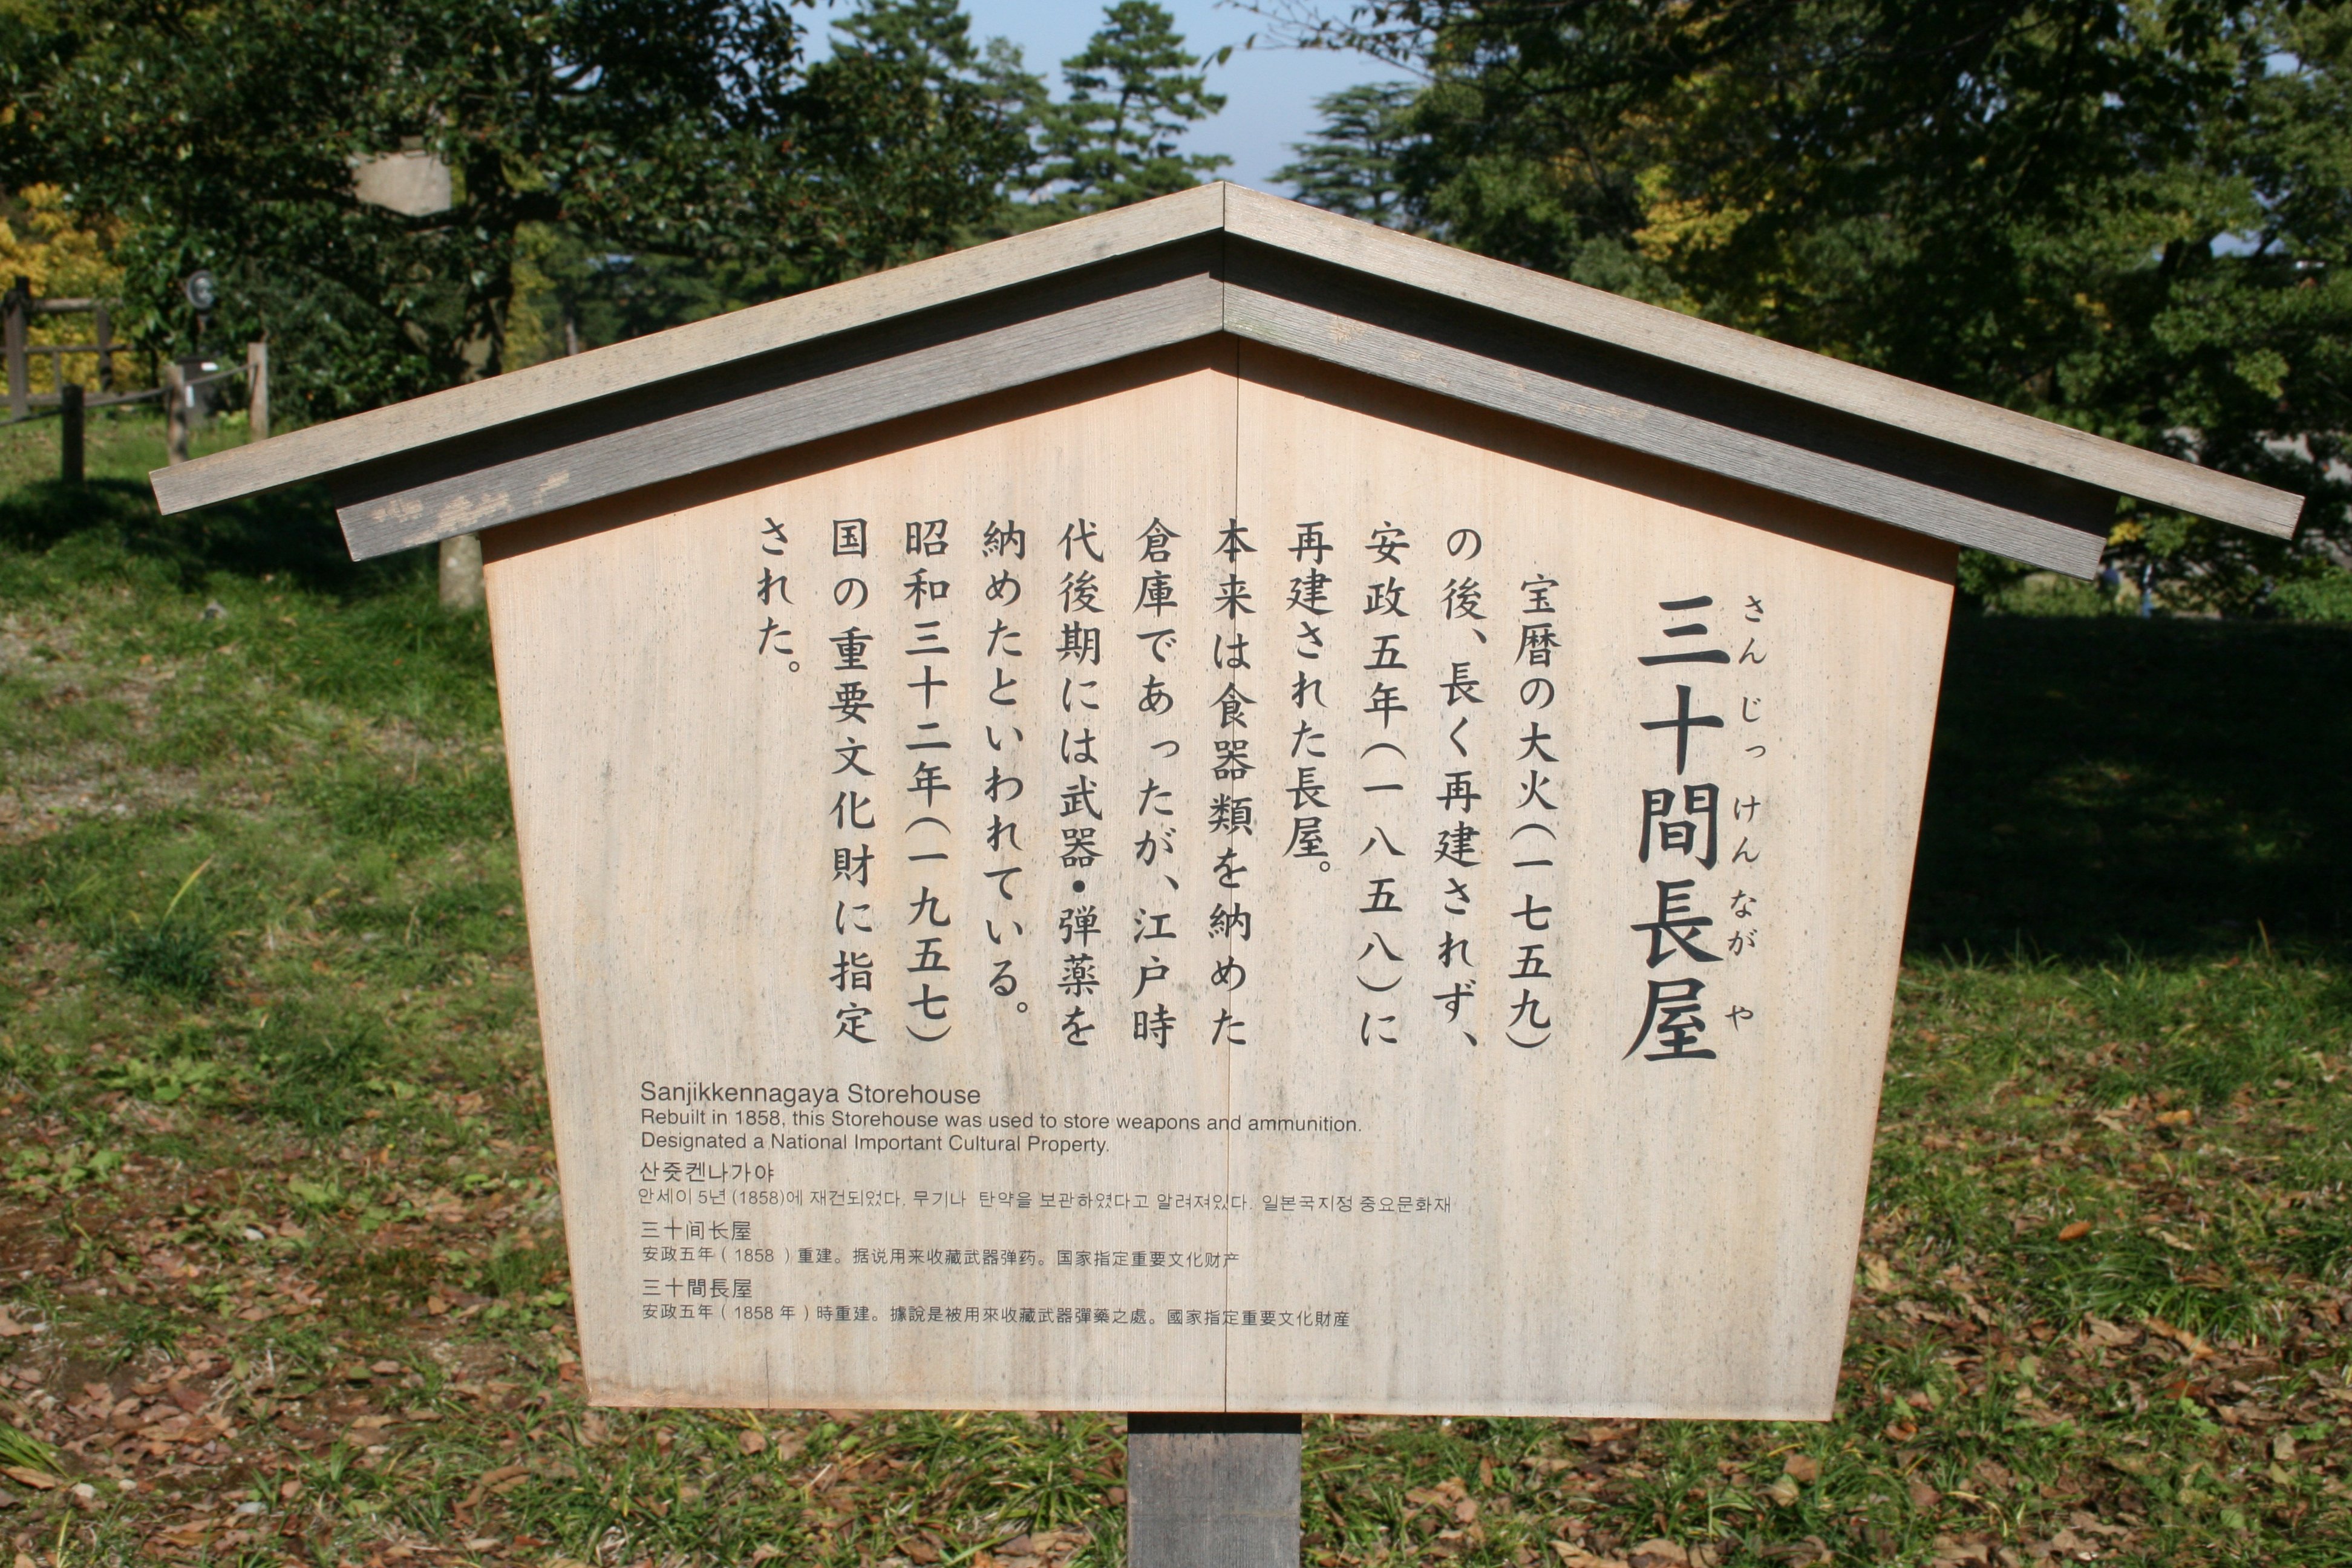 三十間長屋
さんじっけんながや
宝暦の大火(一七五九)
の後、長く再建されず、
安政五年(一八五八)に
再建された長屋。
本来は食器類を納めた
倉庫であったが、江戸時
代後期には武器・弾薬を
納めたといわれている。
昭和三十二年(一九五七)
国の重要文化財に指定
された。
Sanjikkennagaya Storehouse
Rebuilt in 1858, this Storehouse was used to store weapons and ammunition.
Designated a National Important Cultural Property.
산줏켄나가야
안세이 5년 (1858)에 재건되었다. 무기나 탄약을 보관하였다고 알려져있다. 일본국지정 중요문화재
三十间长屋
安政五年 ( 1858 ) 重建。据说用来收藏武器弹药。国家指定重要文化财产
三十間長屋
安政五年 ( 1858 年 ) 時重建。據說是被用來收藏武器彈藥之處。國家指定重要文化財産